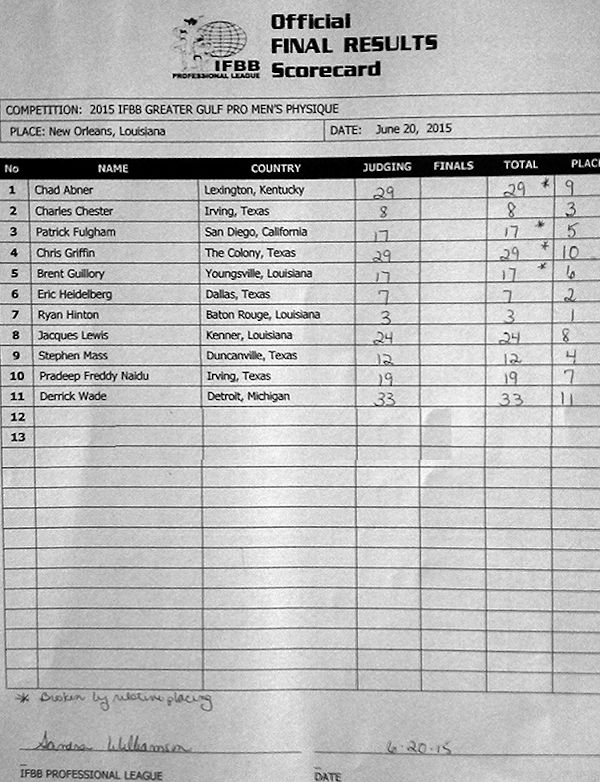 Official
FINAL RESULTS
Scorecard
IFBB
PROFESSIONAL LEAGUE
COMPETITION: 2015 IFBB GREATER GULF PRO MEN'S PHYSIQUE
PLACE: New Orleans, Louisiana DATE: June 20, 2015
No NAME COUNTRY JUDGING FINALS TOTAL PLACE
1 Chad Abner Lexington, Kentucky 29 29 * 9
2 Charles Chester Irving, Texas 8 8 3
3 Patrick Fulgham San Diego, California 17 17 * 5
4 Chris Griffin The Colony, Texas 29 29 * 10
5 Brent Guillory Youngsville, Louisiana 17 17 * 6
6 Eric Heidelberg Dallas, Texas 7 7 2
7 Ryan Hinton Baton Rouge, Louisiana 3 3 1
8 Jacques Lewis Kenner, Louisiana 24 24 8
9 Stephen Mass Duncanville, Texas 12 12 4
10 Pradeep Freddy Naidu Irving, Texas 19 19 7
11 Derrick Wade Detroit, Michigan 33 33 11
12
13
* Broken by relative placing
Sandra Williamson 6-20-15
IFBB PROFESSIONAL LEAGUE DATE